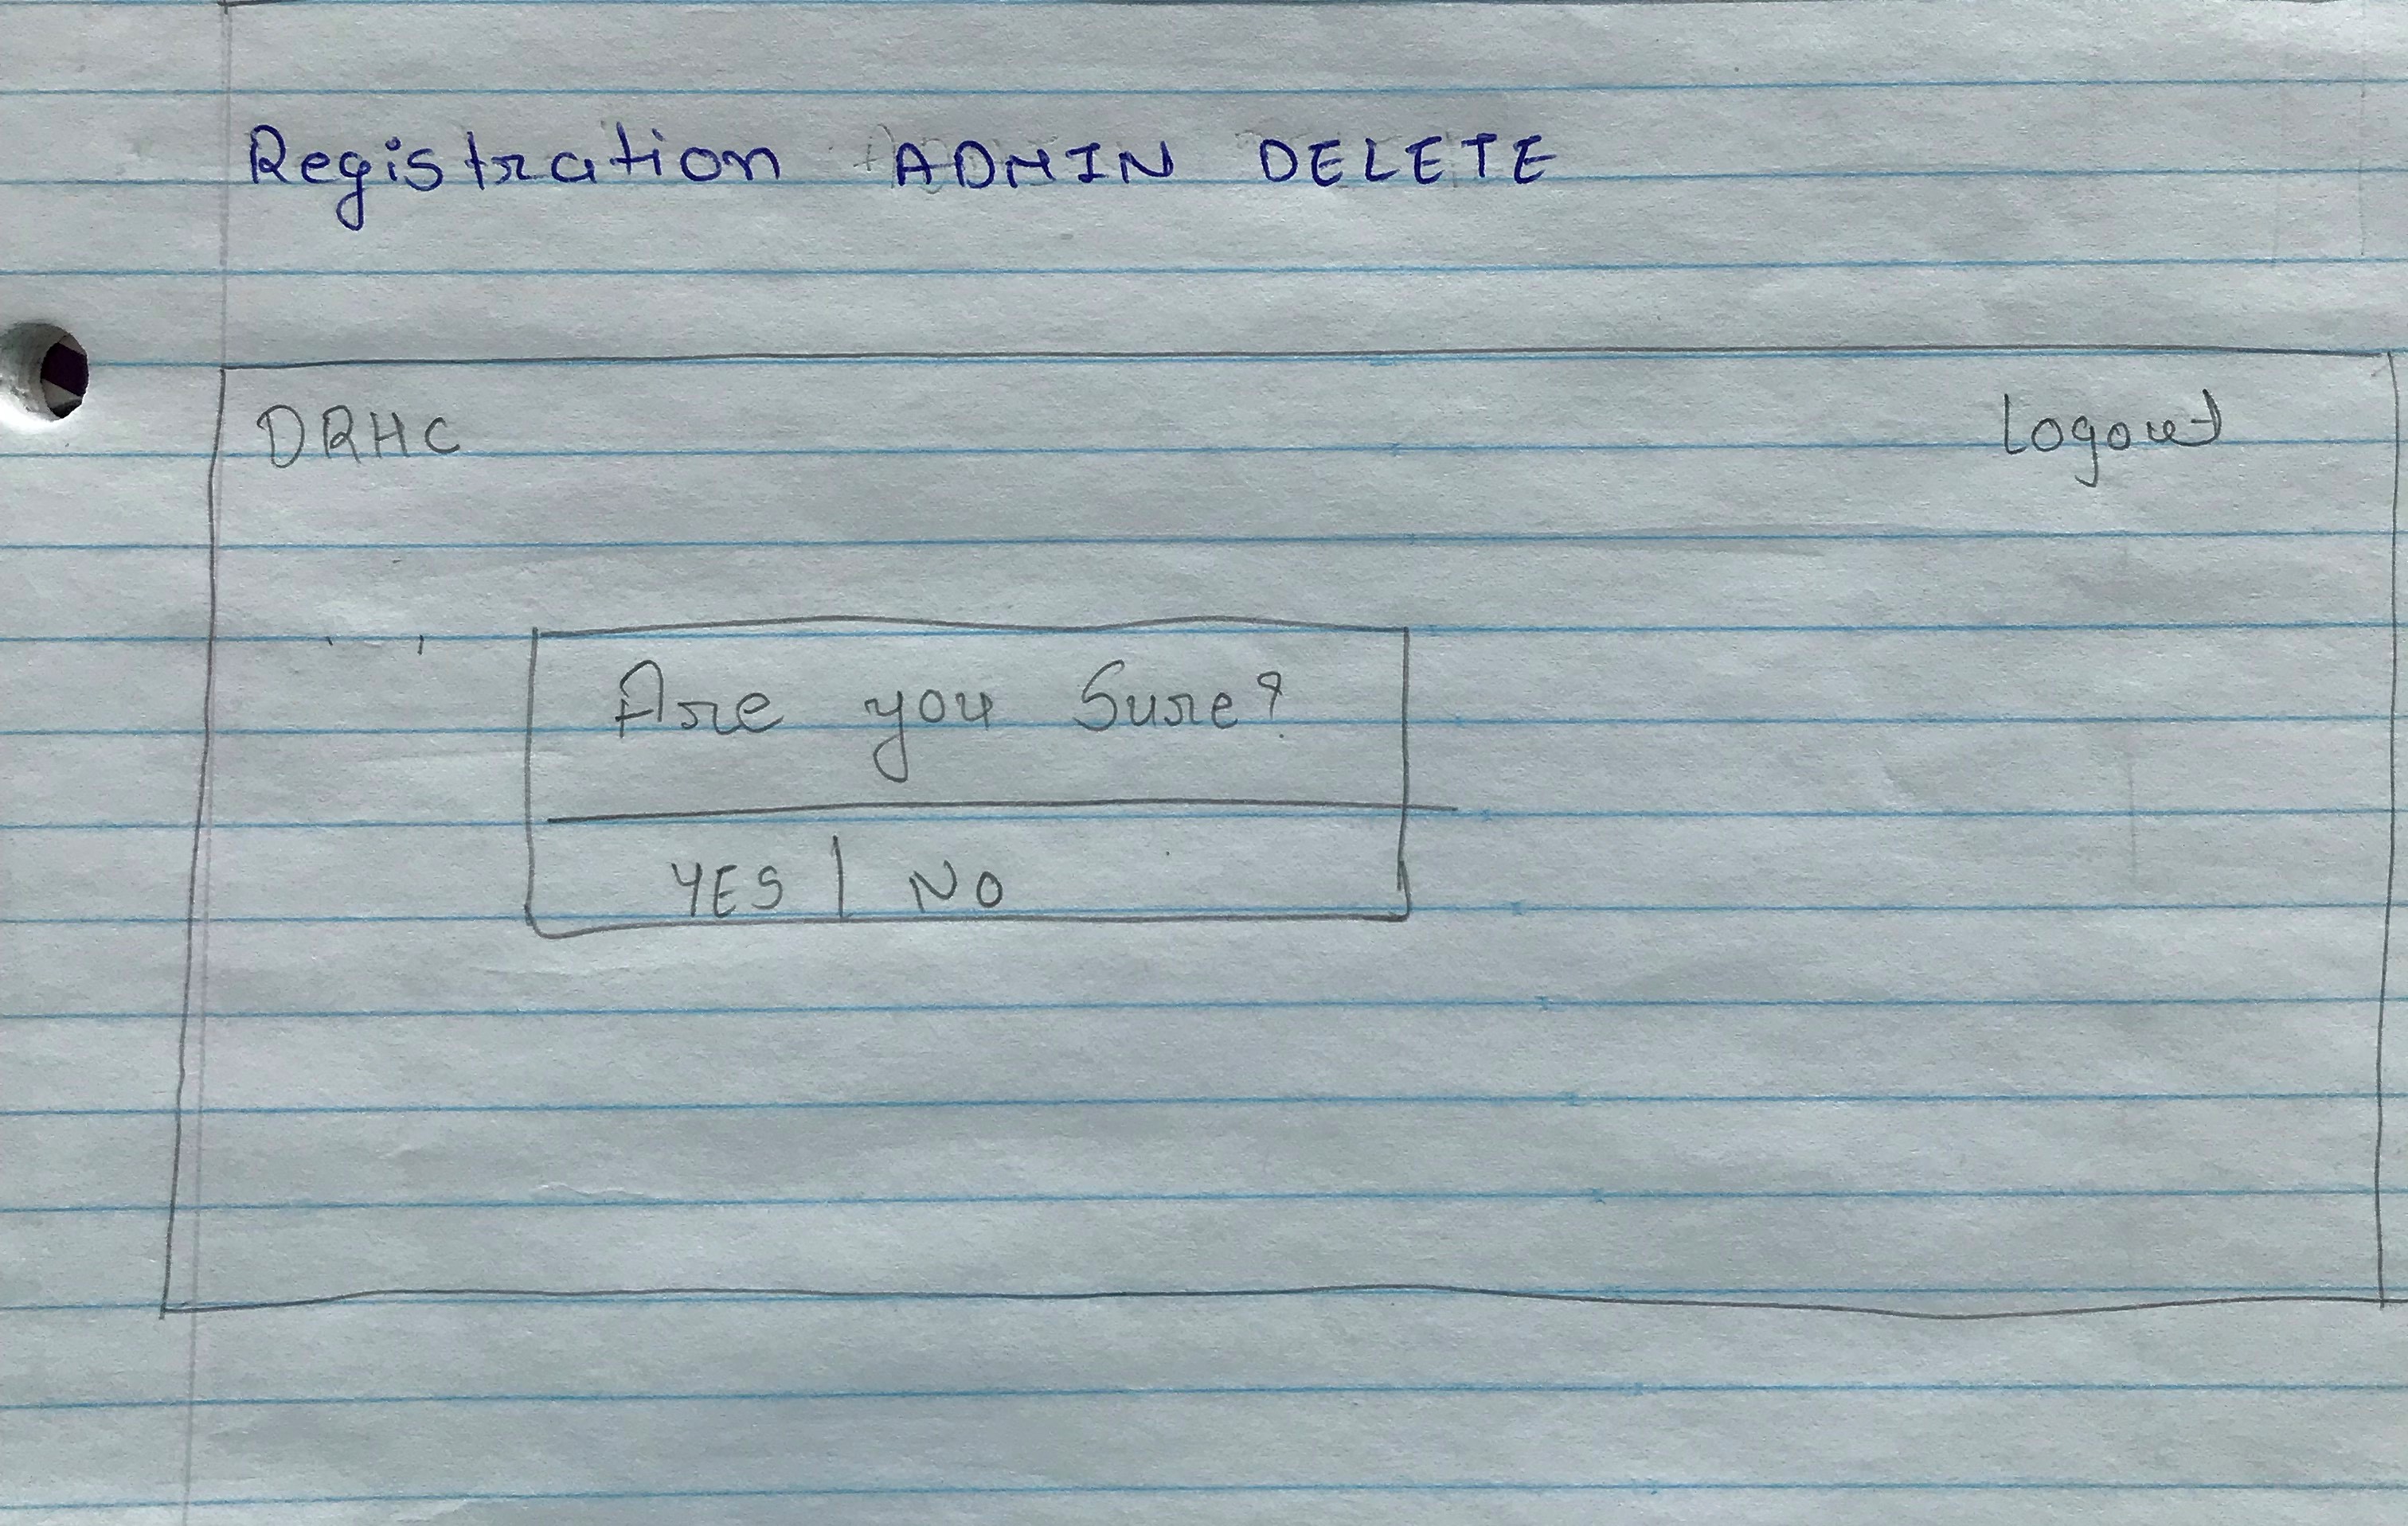 Registration ADMIN DELETE
DRHC Logout
Are you Sure?
YES | NO